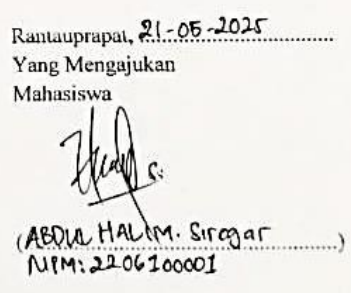 Rantauprapat, 21-05-2025
Yang Mengajukan
Mahasiswa
(ABDUL HALIM. Siregar)
NPM: 2206100001